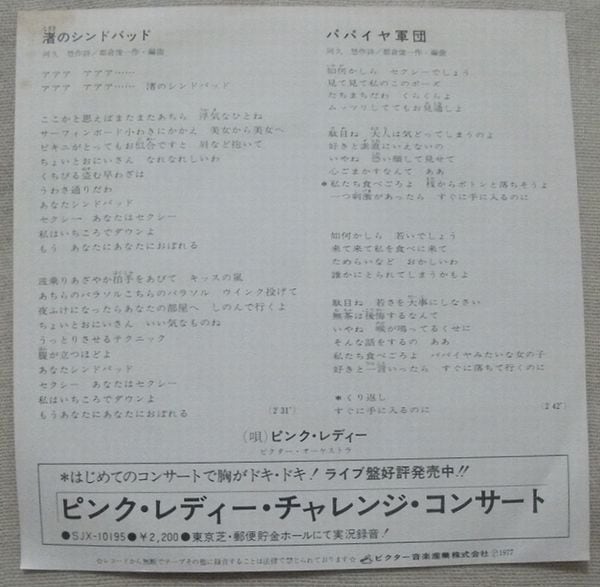 渚のシンドバッド
阿久 悠作詩／都倉俊一作・編曲
アアア アアア……
アアア アアア…… 渚のシンドバッド
ここかと思えばまたまたあちら 浮気なひとね
サーフィンボード小わきにかかえ 美女から美女へ
ビキニがとってもお似合ですと 肩など抱いて
ちょいとおにいさん なれなれしいわ
くちびる盗む早わざは
うわさ通りだわ
あなたシンドバッド
セクシー あなたはセクシー
私はいちころでダウンよ
もう あなたにあなたにおぼれる
波乗りあざやか拍手をあびて キッスの嵐
あちらのパラソルこちらのパラソル ウインク投げて
夜ふけになったらあなたの部屋へ しのんで行くよ
ちょいとおにいさん いい気なものね
うっとりさせるテクニック
腹が立つほどよ
あなたシンドバッド
セクシー あなたはセクシー
私はいちころでダウンよ
もうあなたにあなたにおぼれる
(2′31″)
パパイヤ軍団
阿久 悠作詩／都倉俊一作・編曲
如何かしら セクシーでしょう
見て見て私のこのポーズ
たちまちだわ くらくらよ
ムッツリしててもお見通しよ
駄目ね 大人は気どってしまうのよ
好きと素直にいえないの
いやね 渋い顔して見せて
心ごまかすなんて ああ
＊私たち食べごろよ 枝からポトンと落ちそうよ
一つ刺激があったら すぐに手に入るのに
如何かしら 若いでしょう
来て来て私を食べに来て
ためらいなど おかしいわ
誰かにとられてしまうかもよ
駄目ね 若さを大事にしなさい
無茶は後悔するなんて
いやね 喉が鳴ってるくせに
そんな話をするの ああ
私たち食べごろよ パパイヤみたいな女の子
好きと一言いったら すぐに落ちて行くのに
＊くり返し
すぐに手に入るのに
(2′42″)
(唄)ピンク・レディー
ビクター・オーケストラ
＊はじめてのコンサートで胸がドキ・ドキ！ライブ盤好評発売中!!
ピンク・レディー・チャレンジ・コンサート
●SJX-10195●￥2,200●東京芝・郵便貯金ホールにて実況録音！
☆レコードから無断でテープその他に録音することは法律で禁じられております☆ ビクター音楽産業株式会社 Ⓟ1977